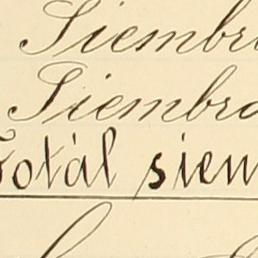 Siembr
Siembra
Total siem